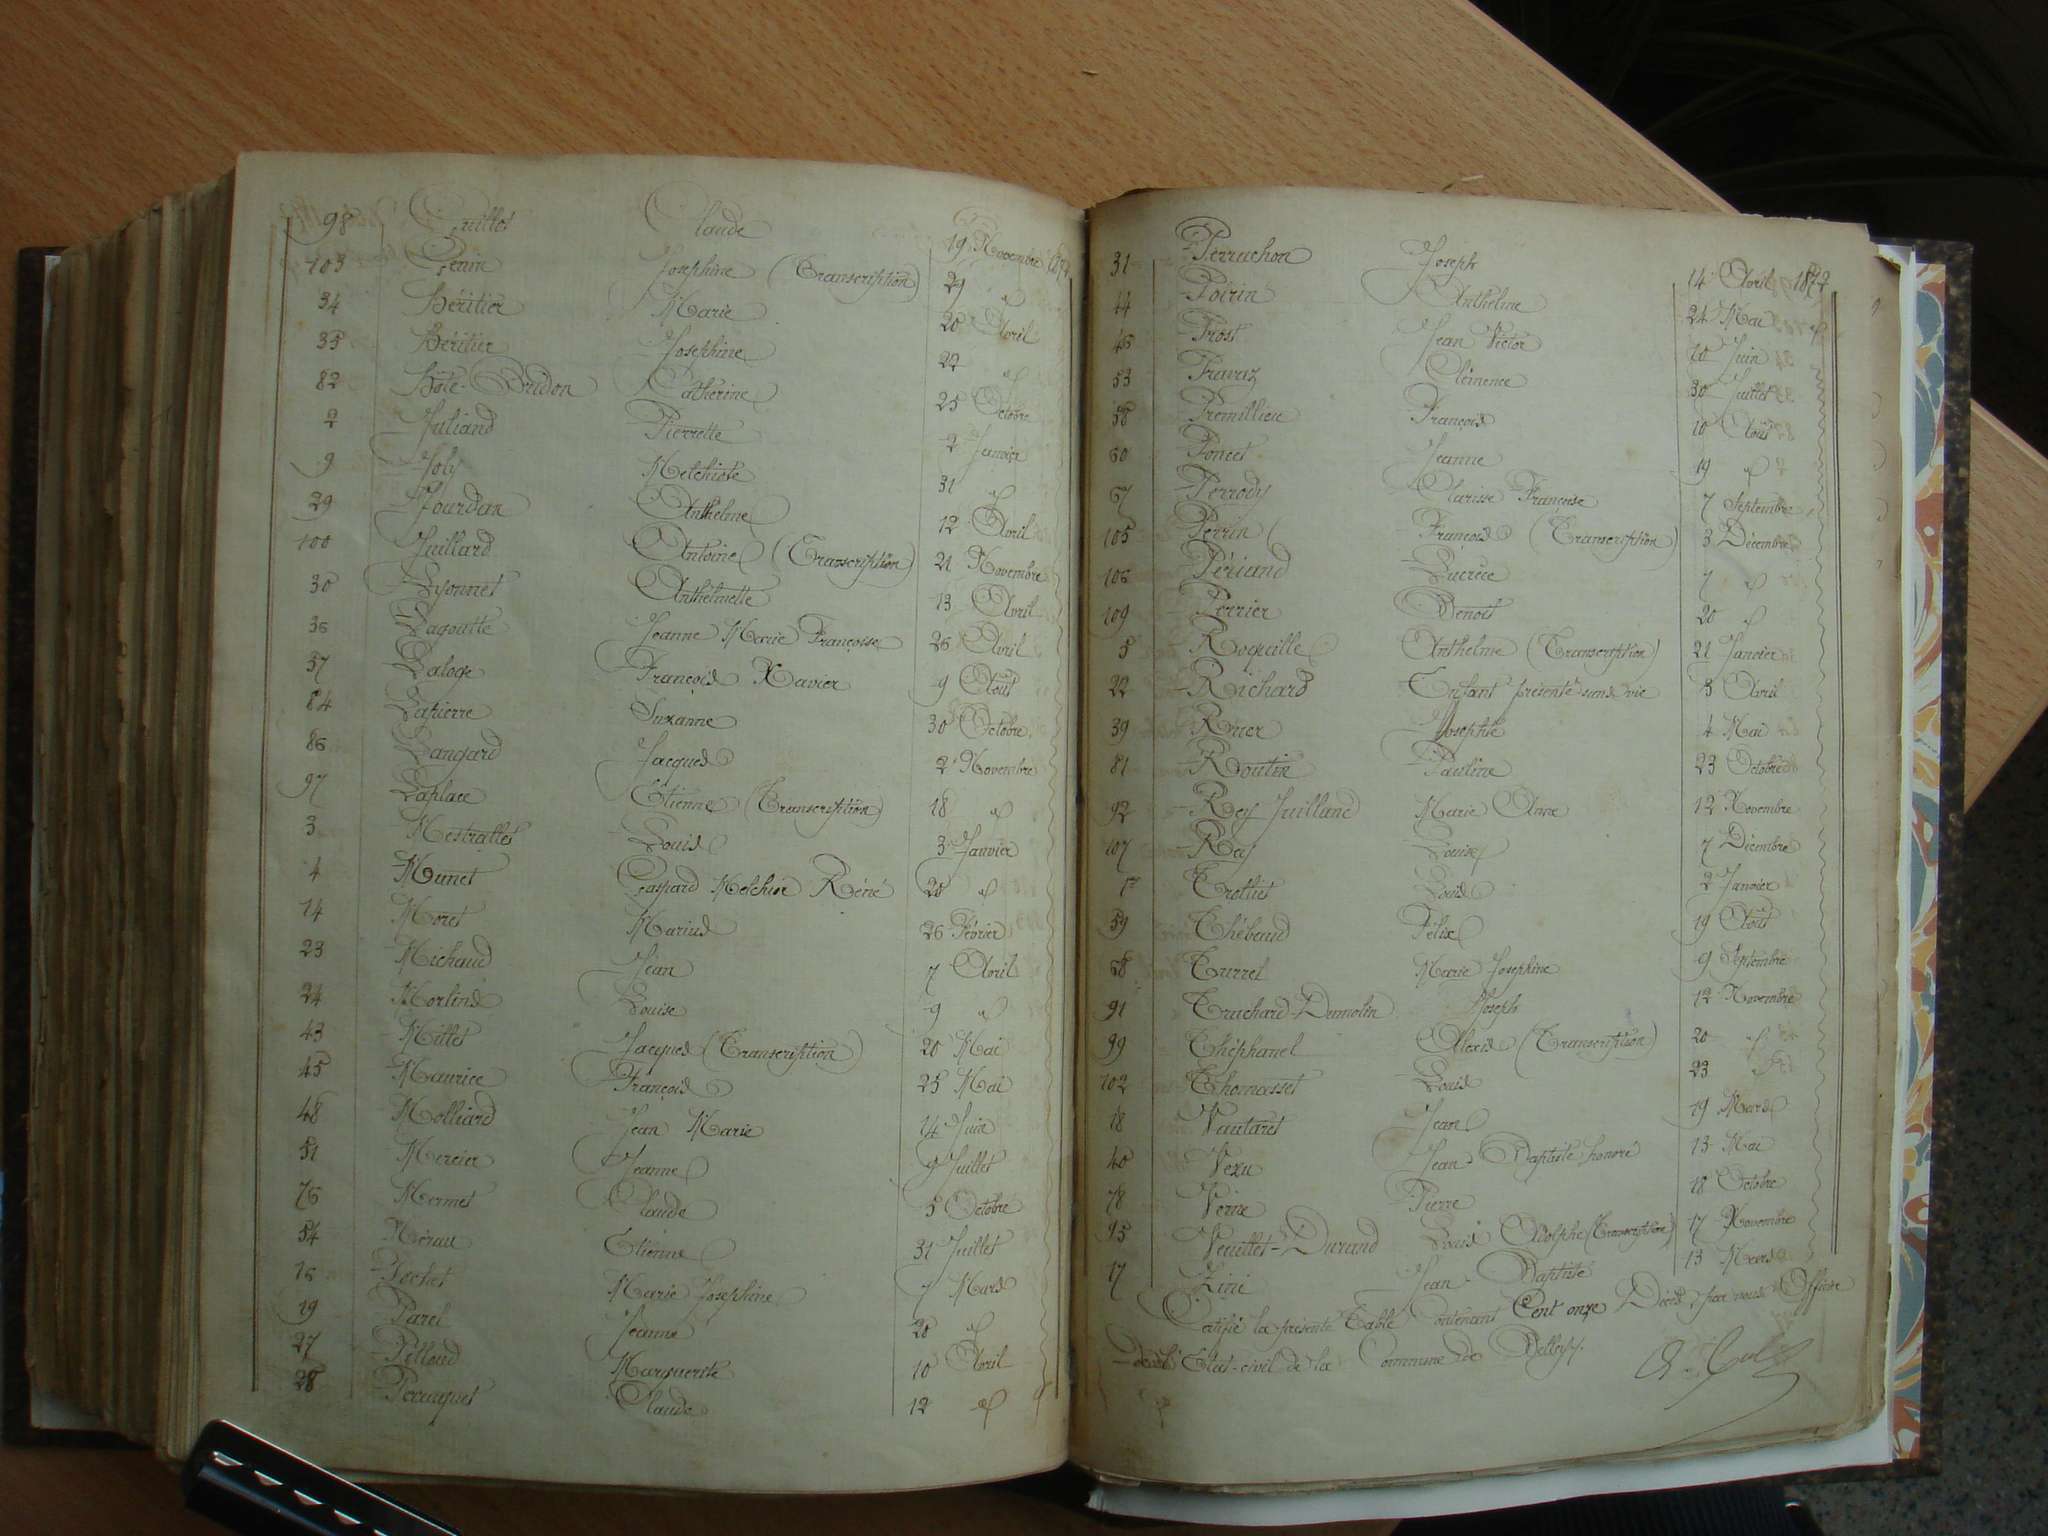 98 Guillot Claude 19 Novembre 1874
103 Genin Josephine (Transcription) 29 "
34 Héritier Marie 20 Avril
35 Héritier Josephine 22 "
82 Hôte-Bridon Catherine 25 Octobre
2 Juliand Pierrette 2 Janvier
9 Joly Melchiote 31 "
29 Jourdan Anthelme 12 Avril
100 Juillard Antoine (Transcription) 21 Novembre
30 Lyonnet Anthelmette 13 Avril
36 Lagoutte Jeanne Marie Françoise 26 Avril
57 Laloge François Xavier 9 Août
84 Lapierre Suzanne 30 Octobre
86 Langard Jacques 2 Novembre
97 Laplace Etienne (Transcription) 18 "
3 Mestrallet Louis 3 Janvier
4 Munet Gaspard Melchior Réné 20 "
14 Moret Marius 26 Février
23 Michaud Jean 7 Avril
24 Morlins Louise 9 "
43 Millet Jacques (Transcription) 20 Mai
45 Maurice François 25 Mai
48 Molliard Jean Marie 14 Juin
51 Mercier Jeanne 9 Juillet
76 Mermet Claude 5 Octobre
54 Etienne 31 Juillet
16 Pochet Marie Josephine Mars
19 Parel Jeanne 20 "
27 Pilloud Marguerite 10 Avril
28 Perruquet Claude 12 "
31 Perruchon Joseph 14 Avril 1874
44 Poirin Anthelme 24 Mai "
46 Prost Jean Victor 10 Juin
53 Pravaz Clémence 30 Juillet
58 Premillieu François 10 Août
60 Poncet Jeanne 19 "
67 Perrody Clarisse Françoise 7 Septembre
105 Perrin François (Transcription) 3 Décembre
106 Périand Lucrèce 7 "
109 Perrier Benoit 20 "
5 Roqueille Anthelme (Transcription) 21 Janvier
22 Richard Enfant présenté sans vie 5 Avril
39 Josephte 4 Mai
81 Routin Pauline 23 Octobre
92 Rey Juilland Marie Anne 12 Novembre
107 Rey Louise 7 Décembre
1er Trolliet Louis 2 Janvier
59 Thébaud Félix 19 Août
68 Turrel Marie Josephine 9 Septembre
91 Truchard-Dumolin Joseph 12 Novembre
99 Théphanel Alexis (Transcription) 20 "
102 Thomasset Louis 23 "
18 Vautaret Jean 19 Mars
40 Vezu Jean Baptiste honoré 13 Mai
78 Verne Pierre 18 Octobre
95 Veuillet-Durand Louis Adolphe (Transcription) 17 Novembre
17 Zini Jean Baptiste 13 Mars
Certifié la présente Table Contenant Cent onze Décès par nous Officier
de l'Etat-civil de la Commune de Belley.